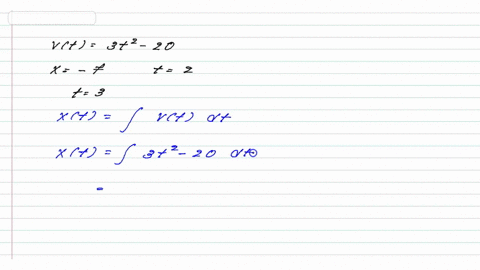 v(t) = 3t² - 20
x = - 7 t = 2
t = 3
x(t) = ∫ v(t) dt
x(t) = ∫ 3t² - 20 dt
=